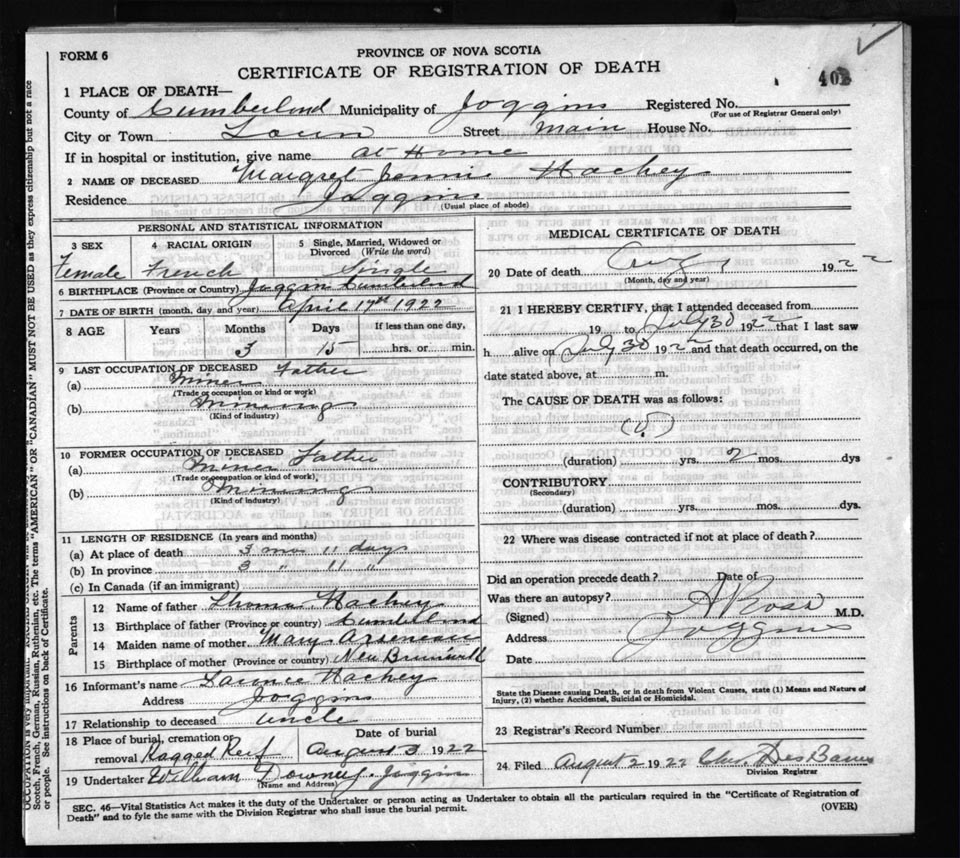 FORM 6
PROVINCE OF NOVA SCOTIA
CERTIFICATE OF REGISTRATION OF DEATH
1 PLACE OF DEATH—
County of Cumberland Municipality of Joggins Registered No.
(For use of Registrar General only)
City or Town Town Street Main House No.
If in hospital or institution, give name at Home
2 NAME OF DECEASED Margret Jennie Hachey
Residence Joggins
(Usual place of abode)
PERSONAL AND STATISTICAL INFORMATION
3 SEX 4 RACIAL ORIGIN 5 Single, Married, Widowed or Divorced (Write the word)
Female French Single
6 BIRTHPLACE (Province or Country) Joggins Cumberland
7 DATE OF BIRTH (month, day and year) April 17th 1922
8 AGE Years Months Days If less than one day,
3 15 hrs. or min.
9 LAST OCCUPATION OF DECEASED Father
(a) Miner
(Trade or occupation or kind or work)
(b) Mining
(Kind of industry)
10 FORMER OCCUPATION OF DECEASED Father
(a) Miner
(Trade or occupation or kind or work)
(b) Mining
(Kind of industry)
11 LENGTH OF RESIDENCE (In years and months)
(a) At place of death 3 mos 11 days
(b) In province 3 " 11 "
(c) In Canada (if an immigrant)
Parents
12 Name of father Thomas Hachey
13 Birthplace of father (Province or country) Cumberland
14 Maiden name of mother Mary Arseneau
15 Birthplace of mother (Province or country) New Brunswick
16 Informant's name Hachey
Address Joggins
17 Relationship to deceased uncle
18 Place of burial, cremation or removal Ragged Reef Date of burial August 3 1922
19 Undertaker William Downey Joggins
(Name and Address)
MEDICAL CERTIFICATE OF DEATH
20 Date of death Aug 1922
(Month, day and year)
21 I HEREBY CERTIFY, that I attended deceased from
19 to July 30 1922 that I last saw
h alive on July 30 1922 and that death occurred, on the
date stated above, at m.
The CAUSE OF DEATH was as follows:
(duration) yrs. 2 mos. dys
CONTRIBUTORY
(Secondary)
(duration) yrs. mos. dys
22 Where was disease contracted if not at place of death?
Did an operation precede death? Date of
Was there an autopsy?
(Signed) Ross M.D.
Address Joggins
Date
State the Disease causing Death, or in death from Violent Causes, state (1) Means and Nature of
Injury, (2) whether Accidental, Suicidal or Homicidal.
23 Registrar's Record Number
24 Filed August 2 1922 Chas. DesBarres
Division Registrar
SEC. 46—Vital Statistics Act makes it the duty of the Undertaker or person acting as Undertaker to obtain all the particulars required in the "Certificate of Registration of
Death" and to fyle the same with the Division Registrar who shall issue the burial permit.
(OVER)
Scotch, French, German, Russian, Ruthenian, etc. The terms "AMERICAN" OR "CANADIAN" MUST NOT BE USED as they express citizenship but not a race
or people. See instructions on back of Certificate.